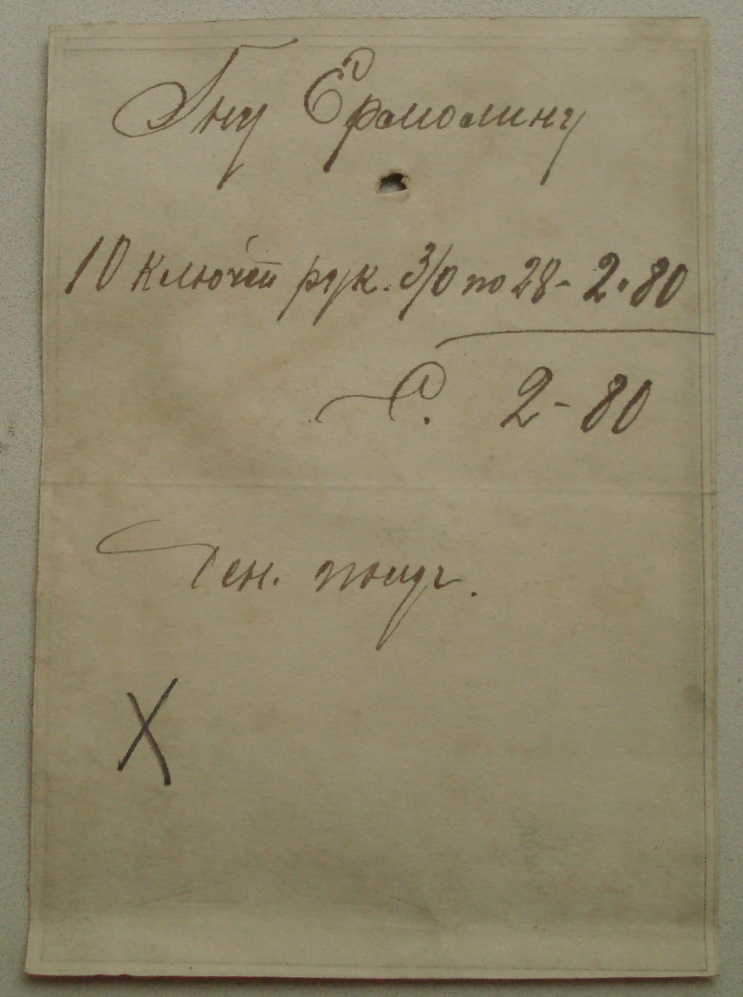 Гну Ермолину
10 ключей рук. 3/0 по 28 - 2.80
С. 2-80
Ден. получ.
X